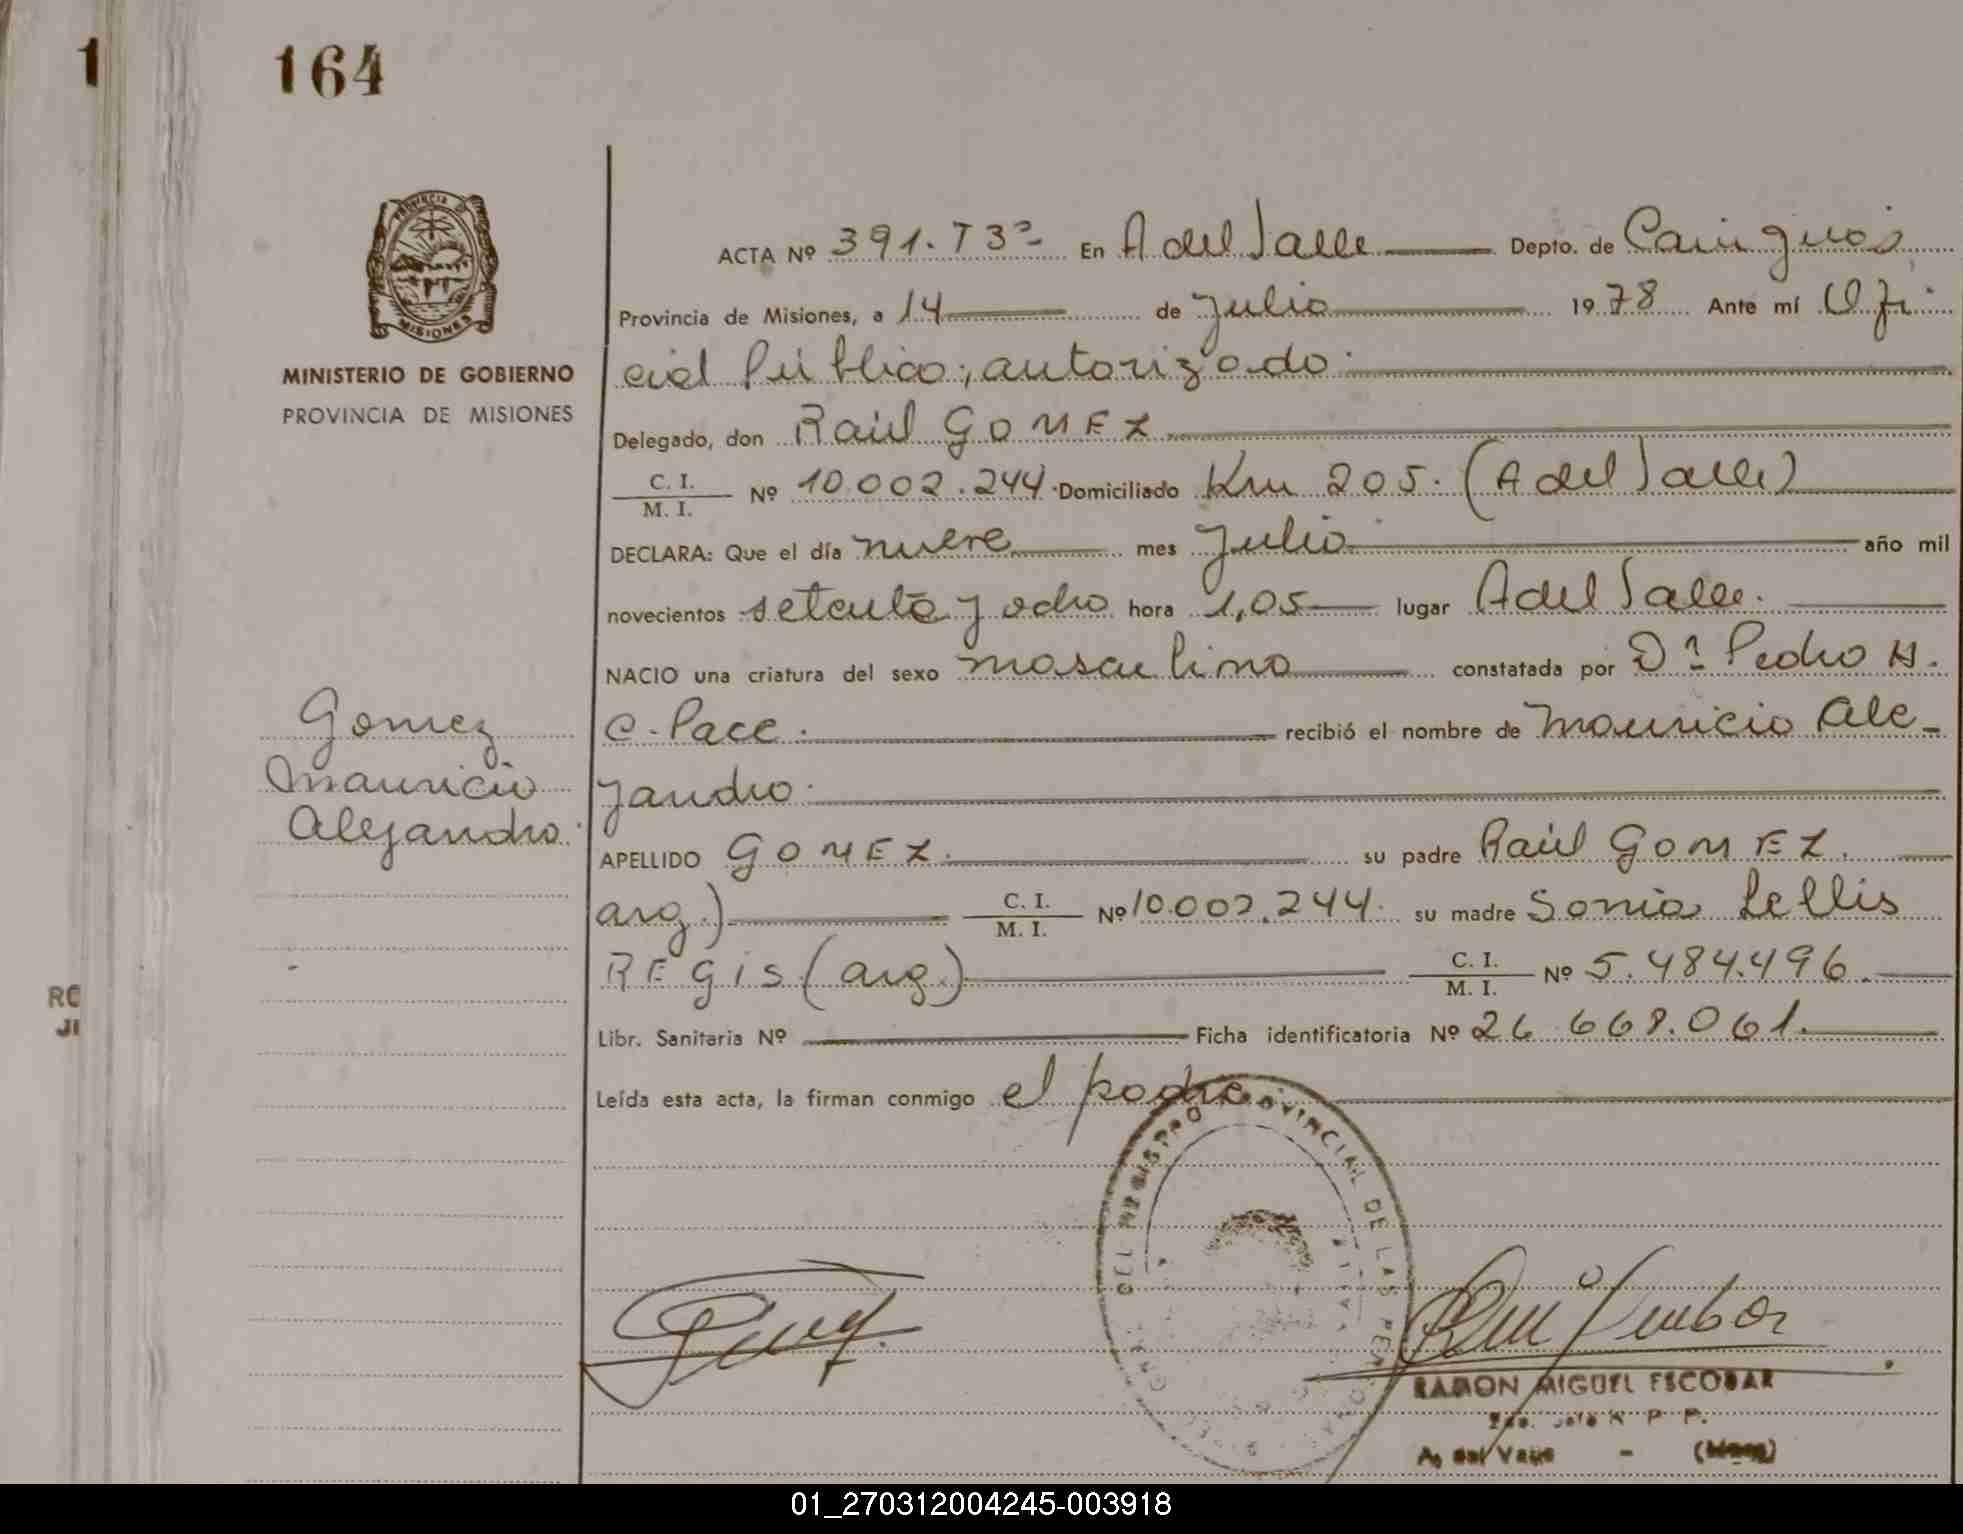 1
164
PROVINCIA D
MISIONES
MINISTERIO DE GOBIERNO
PROVINCIA DE MISIONES
ACTA Nº 391. T 3º En A del Valle Depto. de Cainguás
Provincia de Misiones, a 14 de Julio 1978 Ante mí Ofi
cial Público; autorizado.
Delegado, don Raúl GOMEZ
C. I.
M. I. Nº 10.002.244 Domiciliado Km 205. (A del Valle)
DECLARA: Que el día nueve mes Julio año mil
novecientos setenta y ocho hora 1,05 lugar A del Valle.
NACIO una criatura del sexo masculino constatada por Dr Pedro H.
C. Pace. recibió el nombre de Mauricio Ale-
jandro.
Gomez
Mauricio
Alejandro.
APELLIDO GOMEZ. su padre Raúl GOMEZ.
arg.) C. I.
M. I. Nº 10.002.244. su madre Sonia Lellis
REGIS (arg.) C. I.
M. I. Nº 5.484.496.
RO
JI
Libr. Sanitaria Nº Ficha identificatoria Nº 26.668.061.
Leída esta acta, la firman conmigo el padre
DEL REGISTRO PROVINCIAL DE LAS PERSONAS
RAMON MIGUEL ESCOBAR
R P P.
A. del Valle - (Mnes)
01_270312004245-003918